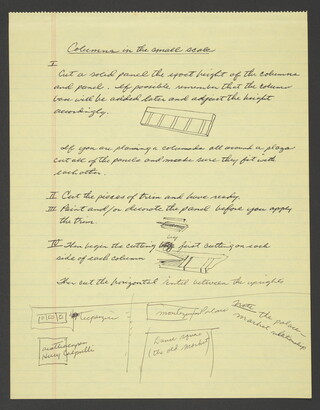 Columns in the small scale
I.
Cut a solid panel the exact height of the columns
and panel. If possible remember that the column
base will be added later and adjust the height
accordingly.
If you are planning a colonnade all around a plaza
cut all of the panels and make sure they fit with
each other.
II. Cut the pieces of trim and have ready.
III. Paint and/or decorate the panel before you apply
the trim.
IV. Then begin the cutting by first cutting on each
side of each column
Then cut the horizontal lintel between the uprights
Note the palace-
market relationship
Dance square
(the old market)